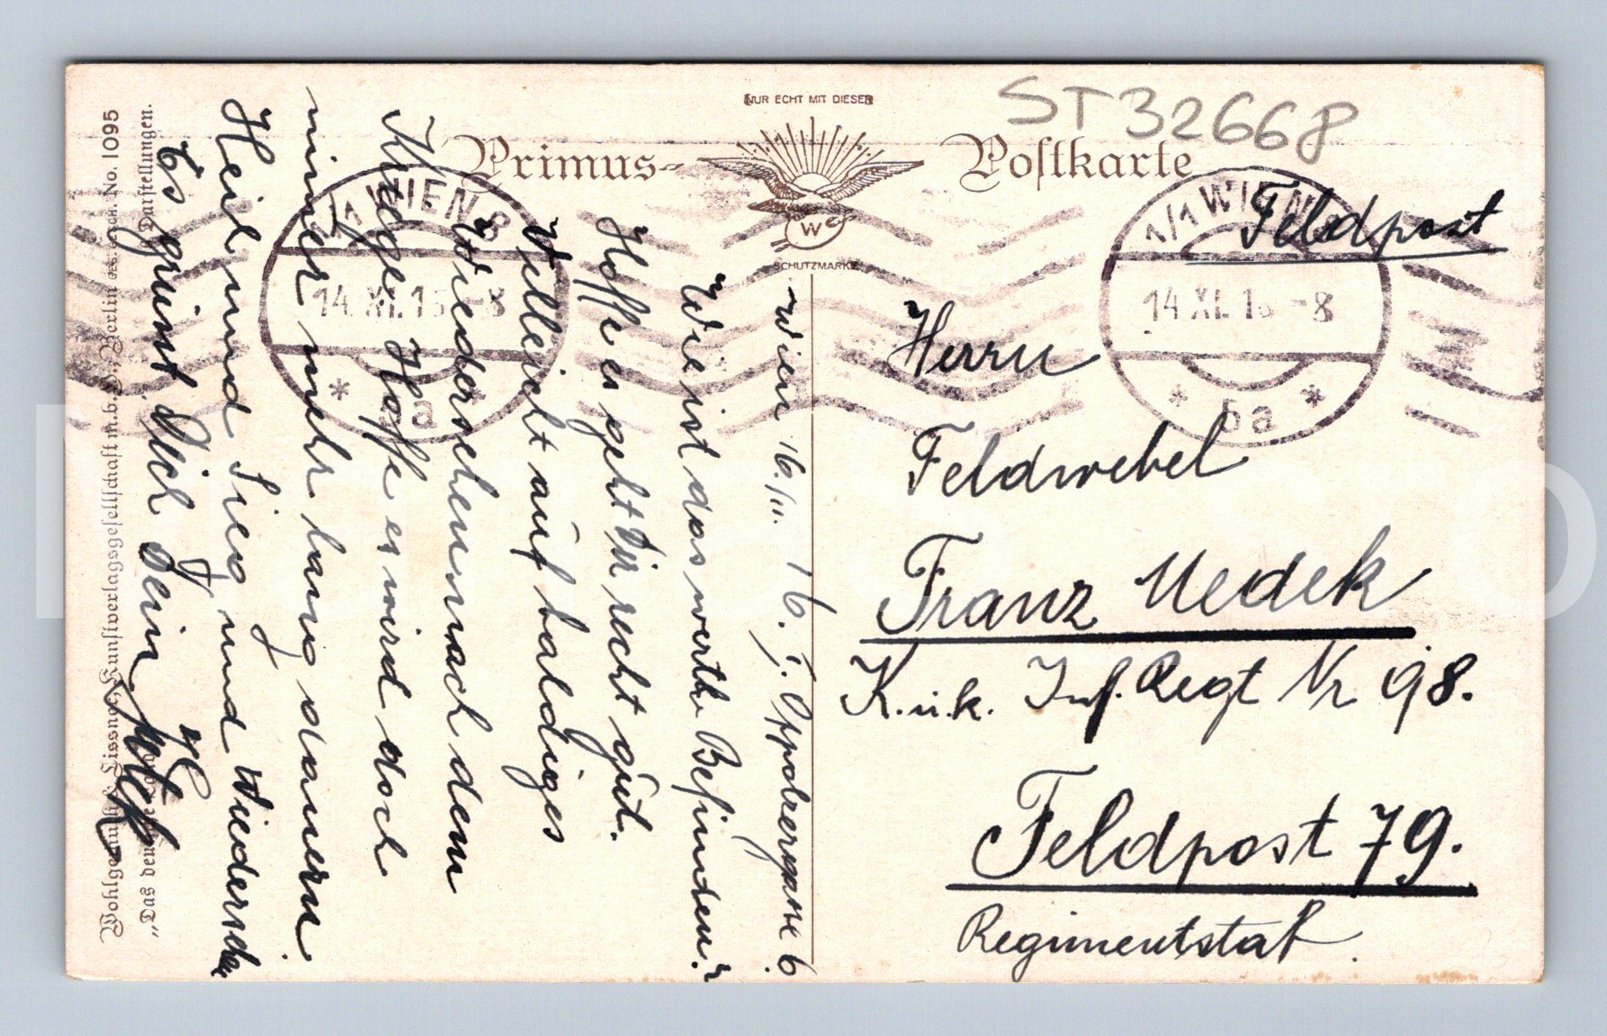 ST 32668
NUR ECHT MIT DIESER
Primus-
Postkarte
W
SCHUTZMARKE
1/1 WIEN 8
14. XI. 1 -8
* 5a *
1/1 WIEN
14 XI. 1 -8
* 5a *
Feldpost
Herrn
Feldwebel
Franz Medek
K.u.k. Inf. Regt Nr 98.
Feldpost 79.
Regimentstab.
Wien 16./11. 16. I. Oppolzergasse 6.
Wie ist das werthe Befinden?
Hoffe es geht Dir recht gut.
Velleicht auf baldiges
Wiedersehen nach dem
Kriege. Hoffe es wird doch
nimer mehr lang dauern.
Heil und Sieg und Wiedersehen
Es grüsst Dich Dein
Wohlgemuth & Lissner, Kunstverlagsgesellschaft m.b.H., Berlin No. 1095
"Das Darstellungen.